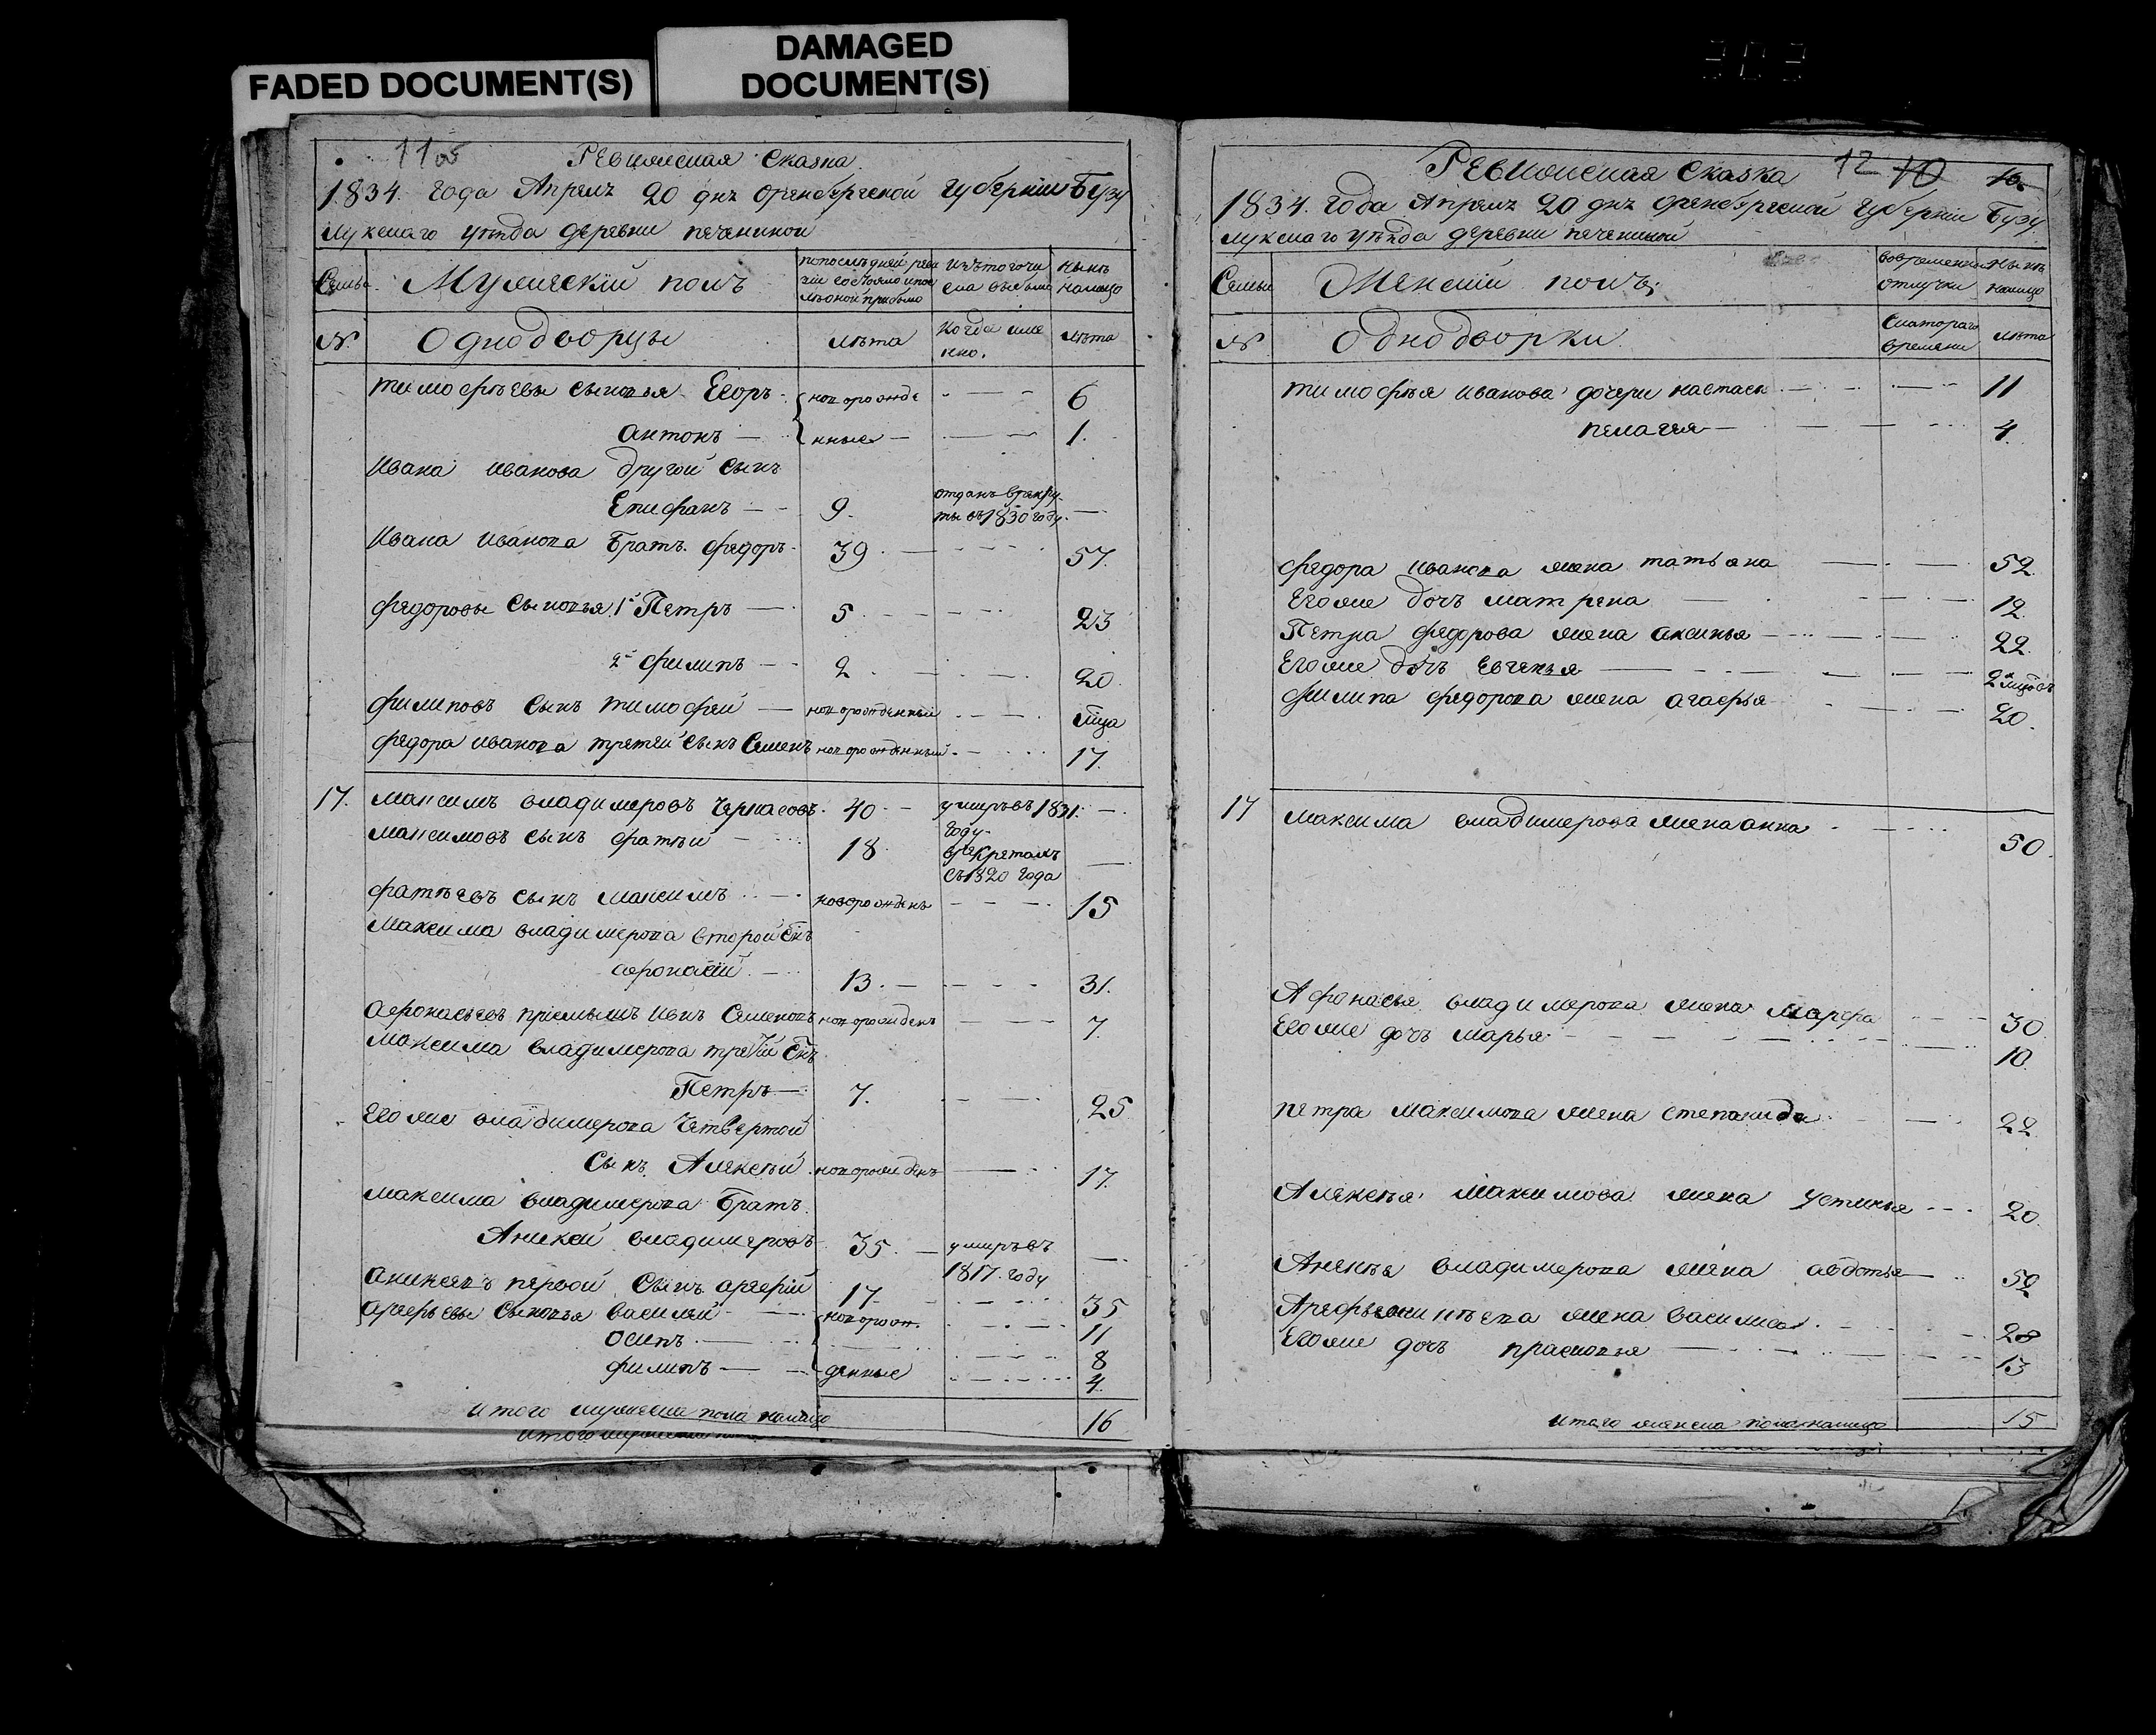 FADED DOCUMENT(S)
DAMAGED
DOCUMENT(S)
11об
Ревижская Сказка
1834. года Апреля 20 дня Оренбургской губернии Бузу
лукскаго уѣзда деревни печениной
Семьи
Мужескій полъ
по последней реви
зіи состояло и после
оной прибыло
Изъ того чи
сла выбыло
Нынѣ
налицо
№
Однодворцы
лѣта
Когда име
нно.
лѣта
тимофѣевы сыновья Егоръ новорожде 6
Антонъ нные 1.
Ивана Иванова другой сынъ
Епифанъ 9. отданъ врекру
ты въ 1830 году
Ивана Иванова Братъ федоръ 39 57.
федоровы сыновья 1й Петръ 5 23
2й филипъ 2 20
филиповъ сынъ тимофей новорожденный м҃ца
федора иванова третей сынъ Семенъ новорожденный 17.
17. Максимъ владимеровъ Черкасовъ 40 умеръ въ 1831.
году
Максимовъ сынъ фатѣй 18 врекретахъ
съ 1820 года
фатѣевъ сынъ Максимъ новорожденъ 15
Максима владимерова второй с҃нъ
афонасій 13. 31.
Афонасьевъ пріемышъ Ивнъ Семеновъ новорожденъ 7.
Максима владимерова третій с҃нъ
Петръ 7. 25
Егоже владимерова Четвертой
сынъ Алексѣй новорожденъ 17.
Максима владимерова Братъ
Аникей владимеровъ 35. умеръ въ
1817. году
Аникеевъ первой сынъ арефій 17 35
Арефьевы сыновья василей новорож 11
осипъ 8
филипъ денные 4.
Итого мужеска пола налицо 16
Ревижская Сказка
12 10 10.
1834. года Апреля 20 дня Оренбургской губерніи Бузу
лукскаго уѣзда деревни печениной
Семьи
Женскій полъ
Вовременной
отлучки
Нынѣ
налицо
№
Однодворки
Скатораго
времяни
Лѣта
тимофѣя иванова дочери настасья 11
пелагея 4.
федора иванова жена татьяна 52
Егоже дочь матрена 12
Петра федорова жена аксинья 22
Егоже дочь Евгенья 2 мцовъ
филипа федорова жена агафья 20.
17 Максима владимерова жена анна 50
Афонасья владимерова жена Марфа 30
Егоже дочь марья 10
петра Максимова жена степанида 22
Алексѣя Максимова жена устинья 20
Анекѣя владимерова жена авдотья 52
Арефья аникѣева жена василиса 28
Егоже дочь прасковья 13
Итого женска пола налицо 15